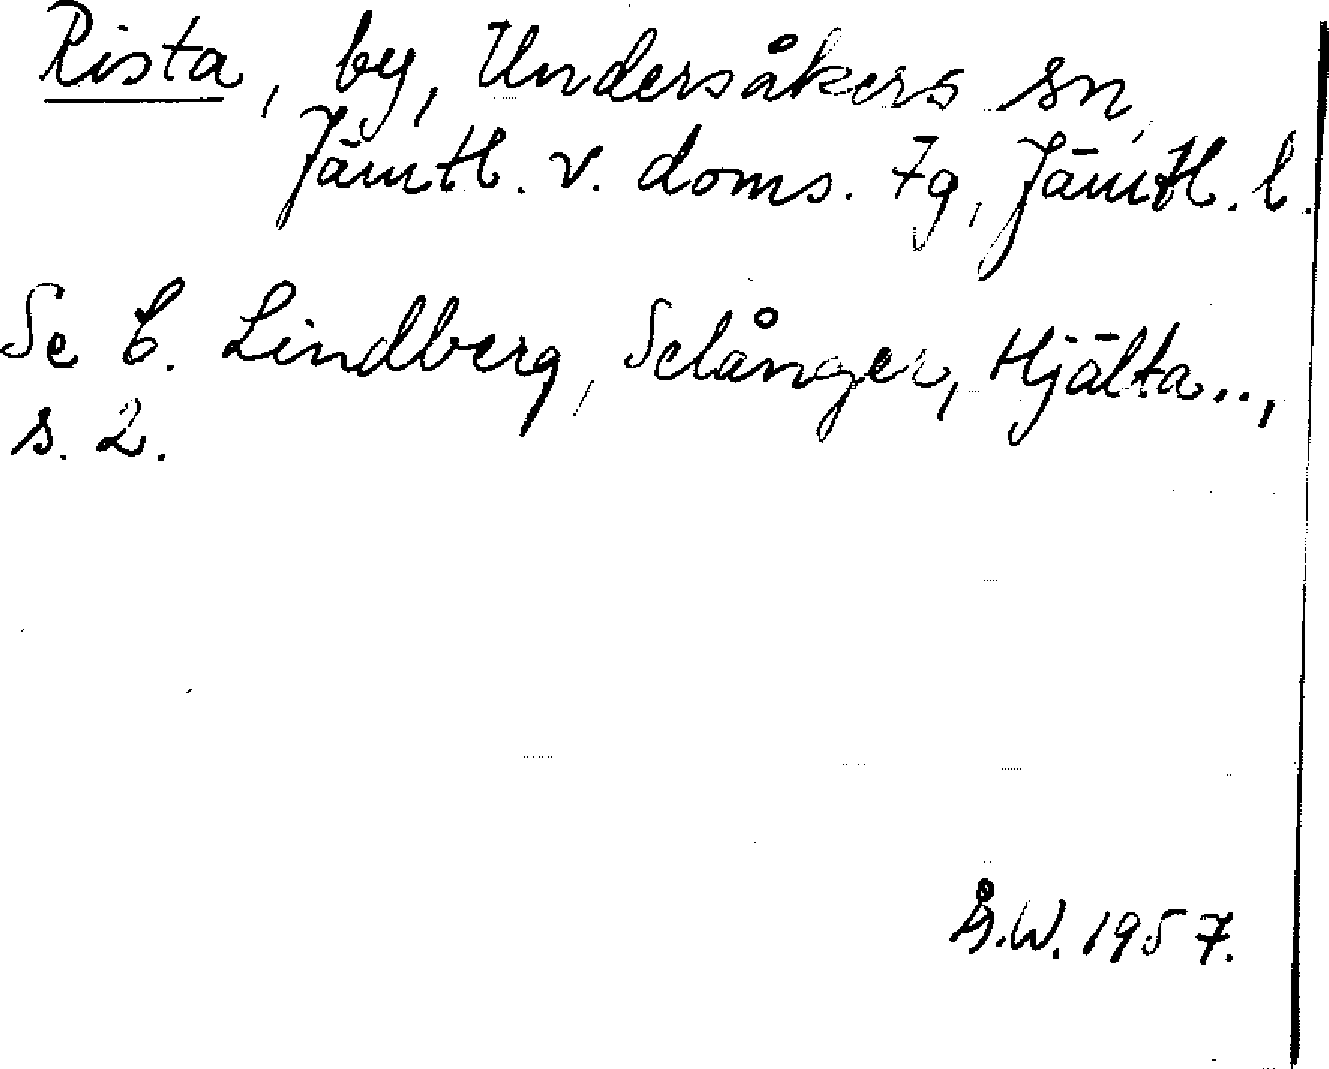 Rista, by, Undersåkers sn,
Jämtl. v. doms. tg, Jämtl. l.
Se C. Lindberg, Selånger, Hjälta..,
s. 2.
Å.W. 1957.